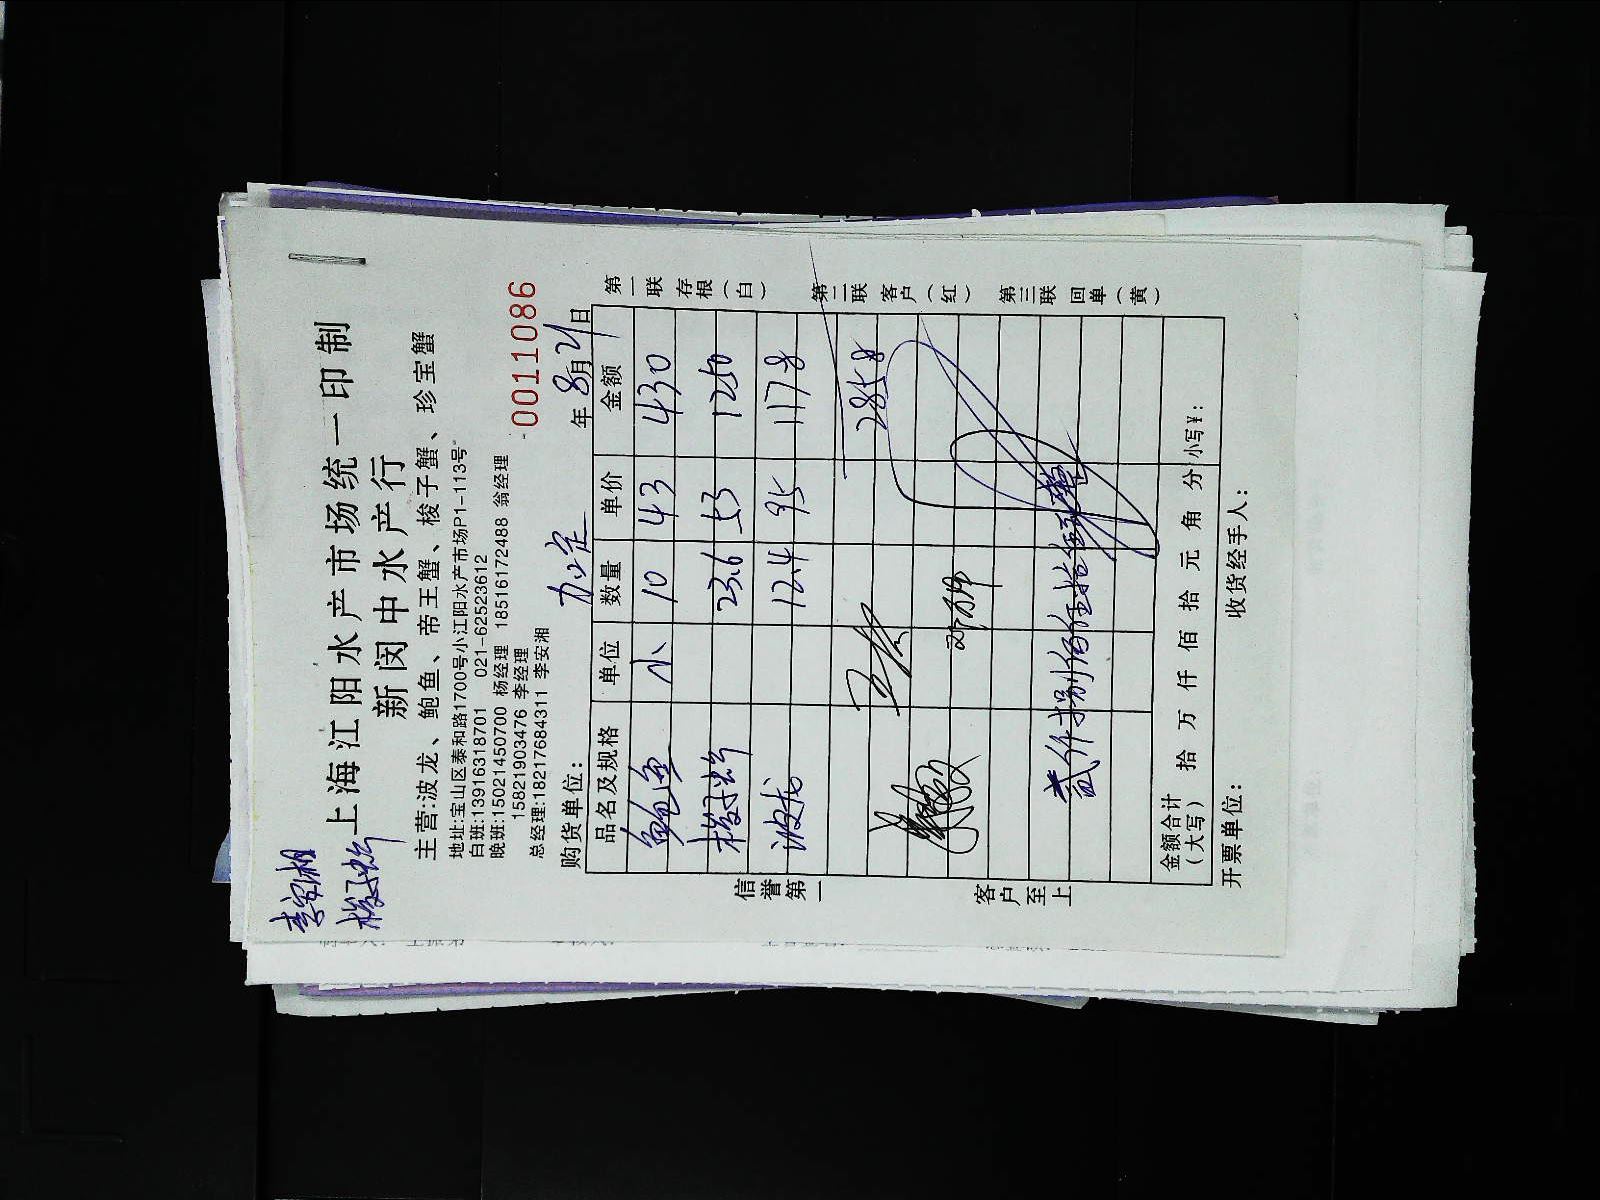 李安湘
梭子蟹
上海江阳水产市场统一印制
新闵中水产行
主营:波龙、鲍鱼、帝王蟹、梭子蟹、珍宝蟹
地址:宝山区泰和路1700号小江阳水产市场P1-113号
白班:13916318701 021-62523612
晚班:15021450700 杨经理 18516172488 翁经理
15821903476 李经理
总经理:18217684311 李安湘
0011086
购货单位: 年8月21日
品名及规格 单位 数量 单价 金额
鲍鱼 小 10 43 430
梭子蟹 23.6 53 1250
波龙 12.4 95 1178
2858
贰仟捌佰伍拾捌元整
金额合计(大写) 拾 万 仟 佰 拾 元 角 分 小写¥:
开票单位: 收货经手人:
信誉第一
客户至上
第一联存根(白)
第二联客户(红)
第三联回单(黄)